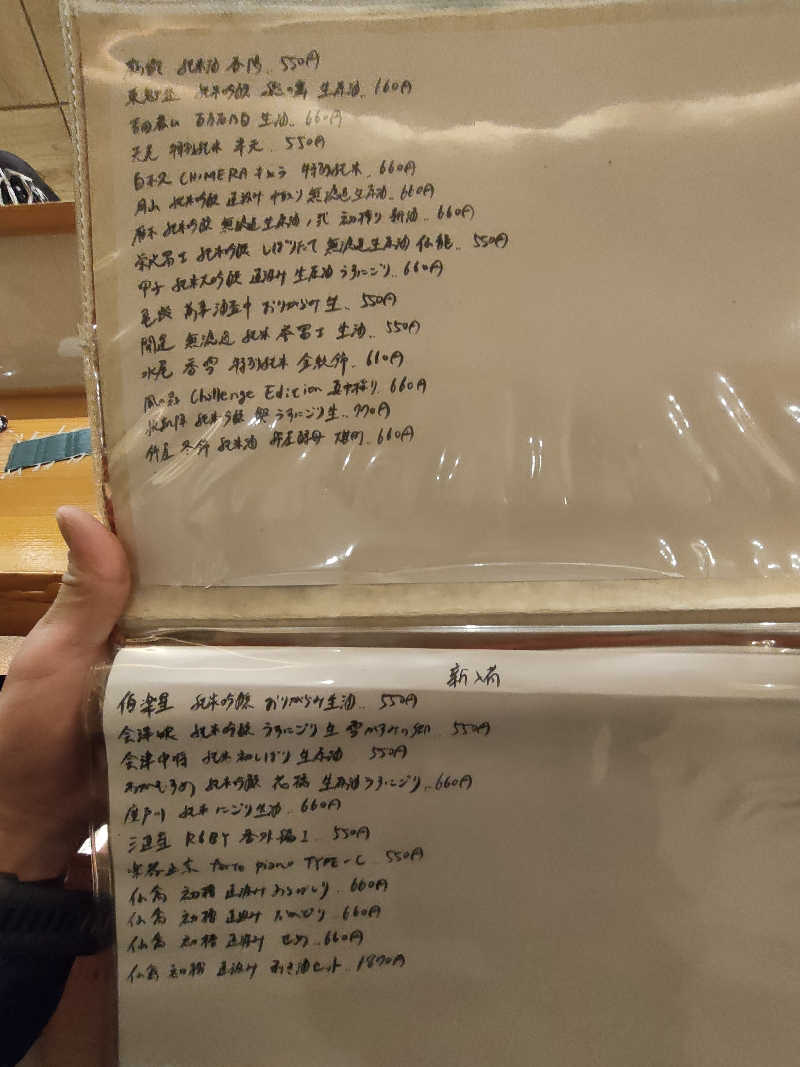 純米酒 550円
純米吟醸 生原酒.. 660円
生酒.. 660円
特別純米 550円
CHIMERA キメラ 特別純米. 660円
月山 純米吟醸 直汲み 中取り 無濾過生原酒.. 660円
純米吟醸 無濾過生原酒 初搾り 新酒.. 660円
栄光冨士 純米吟醸 しぼりたて 無濾過生原酒 仙龍.. 550円
甲子 純米大吟醸 直汲み 生原酒 うすにごり.. 660円
亀齢 萬事酒盃中 おりがらみ 生.. 550円
開運 無濾過 純米 生酒.. 550円
水尾 香雪 特別純米 金紋錦.. 660円
風の森 Challenge Edition 660円
純米吟醸 うすにごり生.. 770円
純米酒 雄町.. 660円
新入荷
伯楽星 純米吟醸 おりがらみ生酒.. 550円
会津娘 純米吟醸 うすにごり 生 雪がすみの郷.. 550円
会津中将 純米 初しぼり 生原酒 550円
わかむすめ 純米吟醸 生原酒うすにごり.. 660円
廣戸川 純米 にごり生酒.. 660円
三連星 R6BY 番外編 550円
楽器正宗 forte piano TYPE-C.. 550円
仙禽 初槽 直汲み あらばしり.. 660円
仙禽 初槽 直汲み なかどり.. 660円
仙禽 初槽 直汲み せめ.. 660円
仙禽 初槽 直汲み 利き酒セット.. 1870円